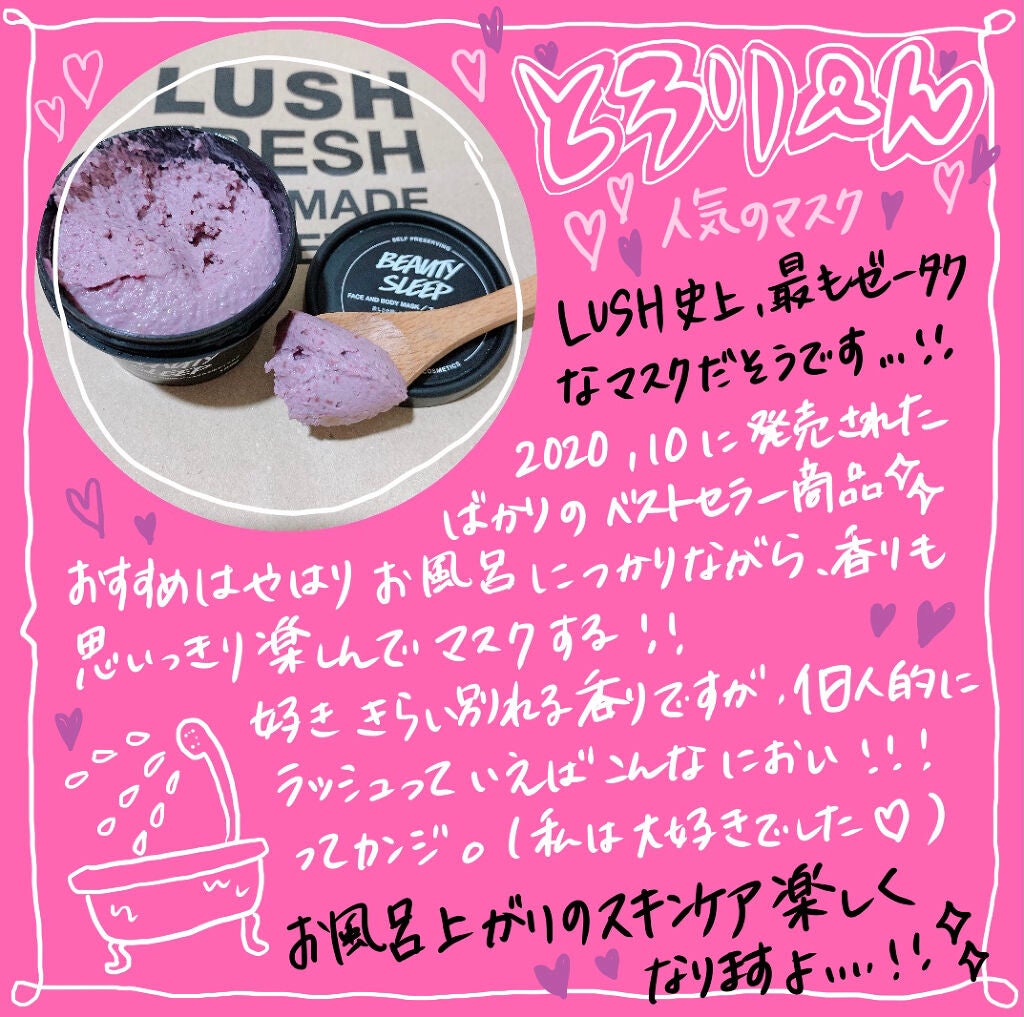 LUSH
RESH
MADE
SELF PRESERVING
BEAUTY
SLEEP
FACE AND BODY MASK
COSMETICS
とろりみん
人気のマスク
LUSH史上、最もゼータク
なマスクだそうです...!!
2020,10に発売された
ばかりのベストセラー商品
おすすめはやはりお風呂につかりながら、香りも
思いっきり楽しんでマスクする!!
好ききらい別れる香りですが、個人的に
ラッシュっていえばこんなにおい!!!
ってカンジ。(私は大好きでした♡)
お風呂上がりのスキンケア楽しく
なりますよ....!!